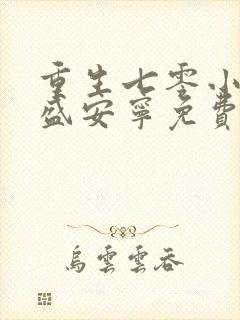 重生七零小
盛安宁免费
烏雲雲吞